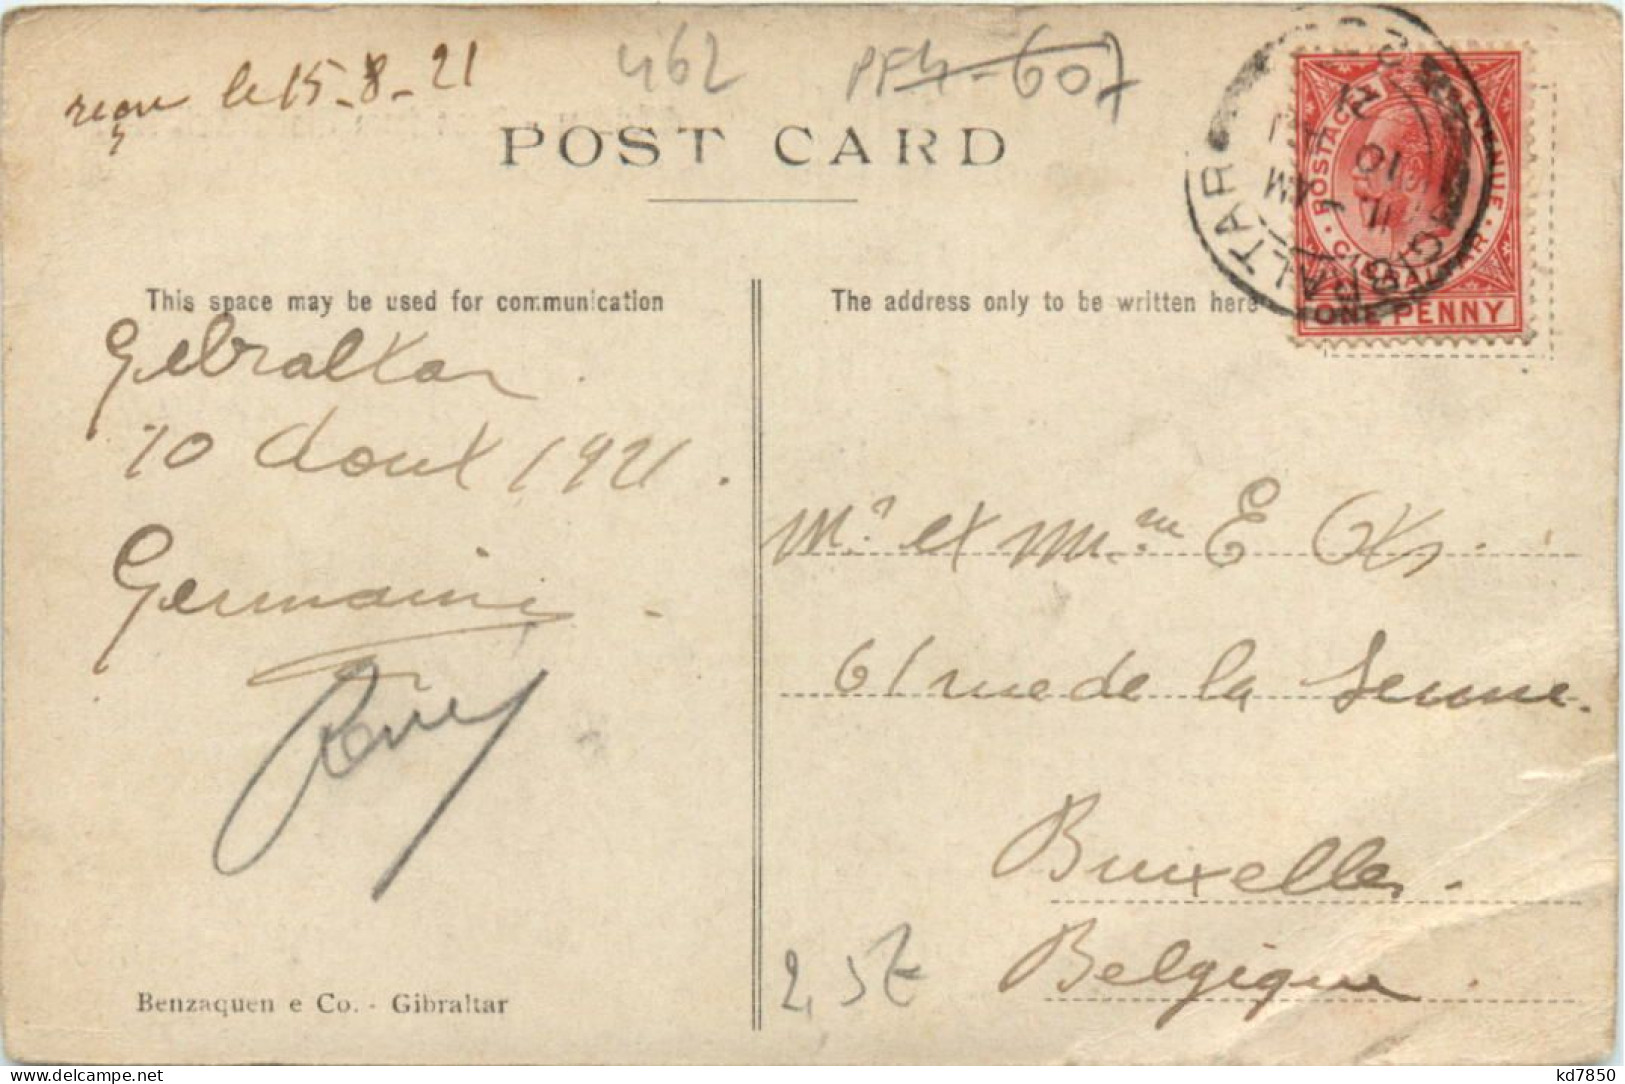 reçu le 15-8-21
462
PF4-607
POST CARD
POSTAGE & REVENUE
GIBRALTAR
ONE PENNY
GIBRALTAR
AM
10
21
This space may be used for communication
The address only to be written here
Gibraltar
10 Aout 1921.
Germaine
Mr et Mme E
61 rue de la Senne.
Bruxelles.
Belgique.
2,5
Benzaquen e Co. - Gibraltar
kd7850